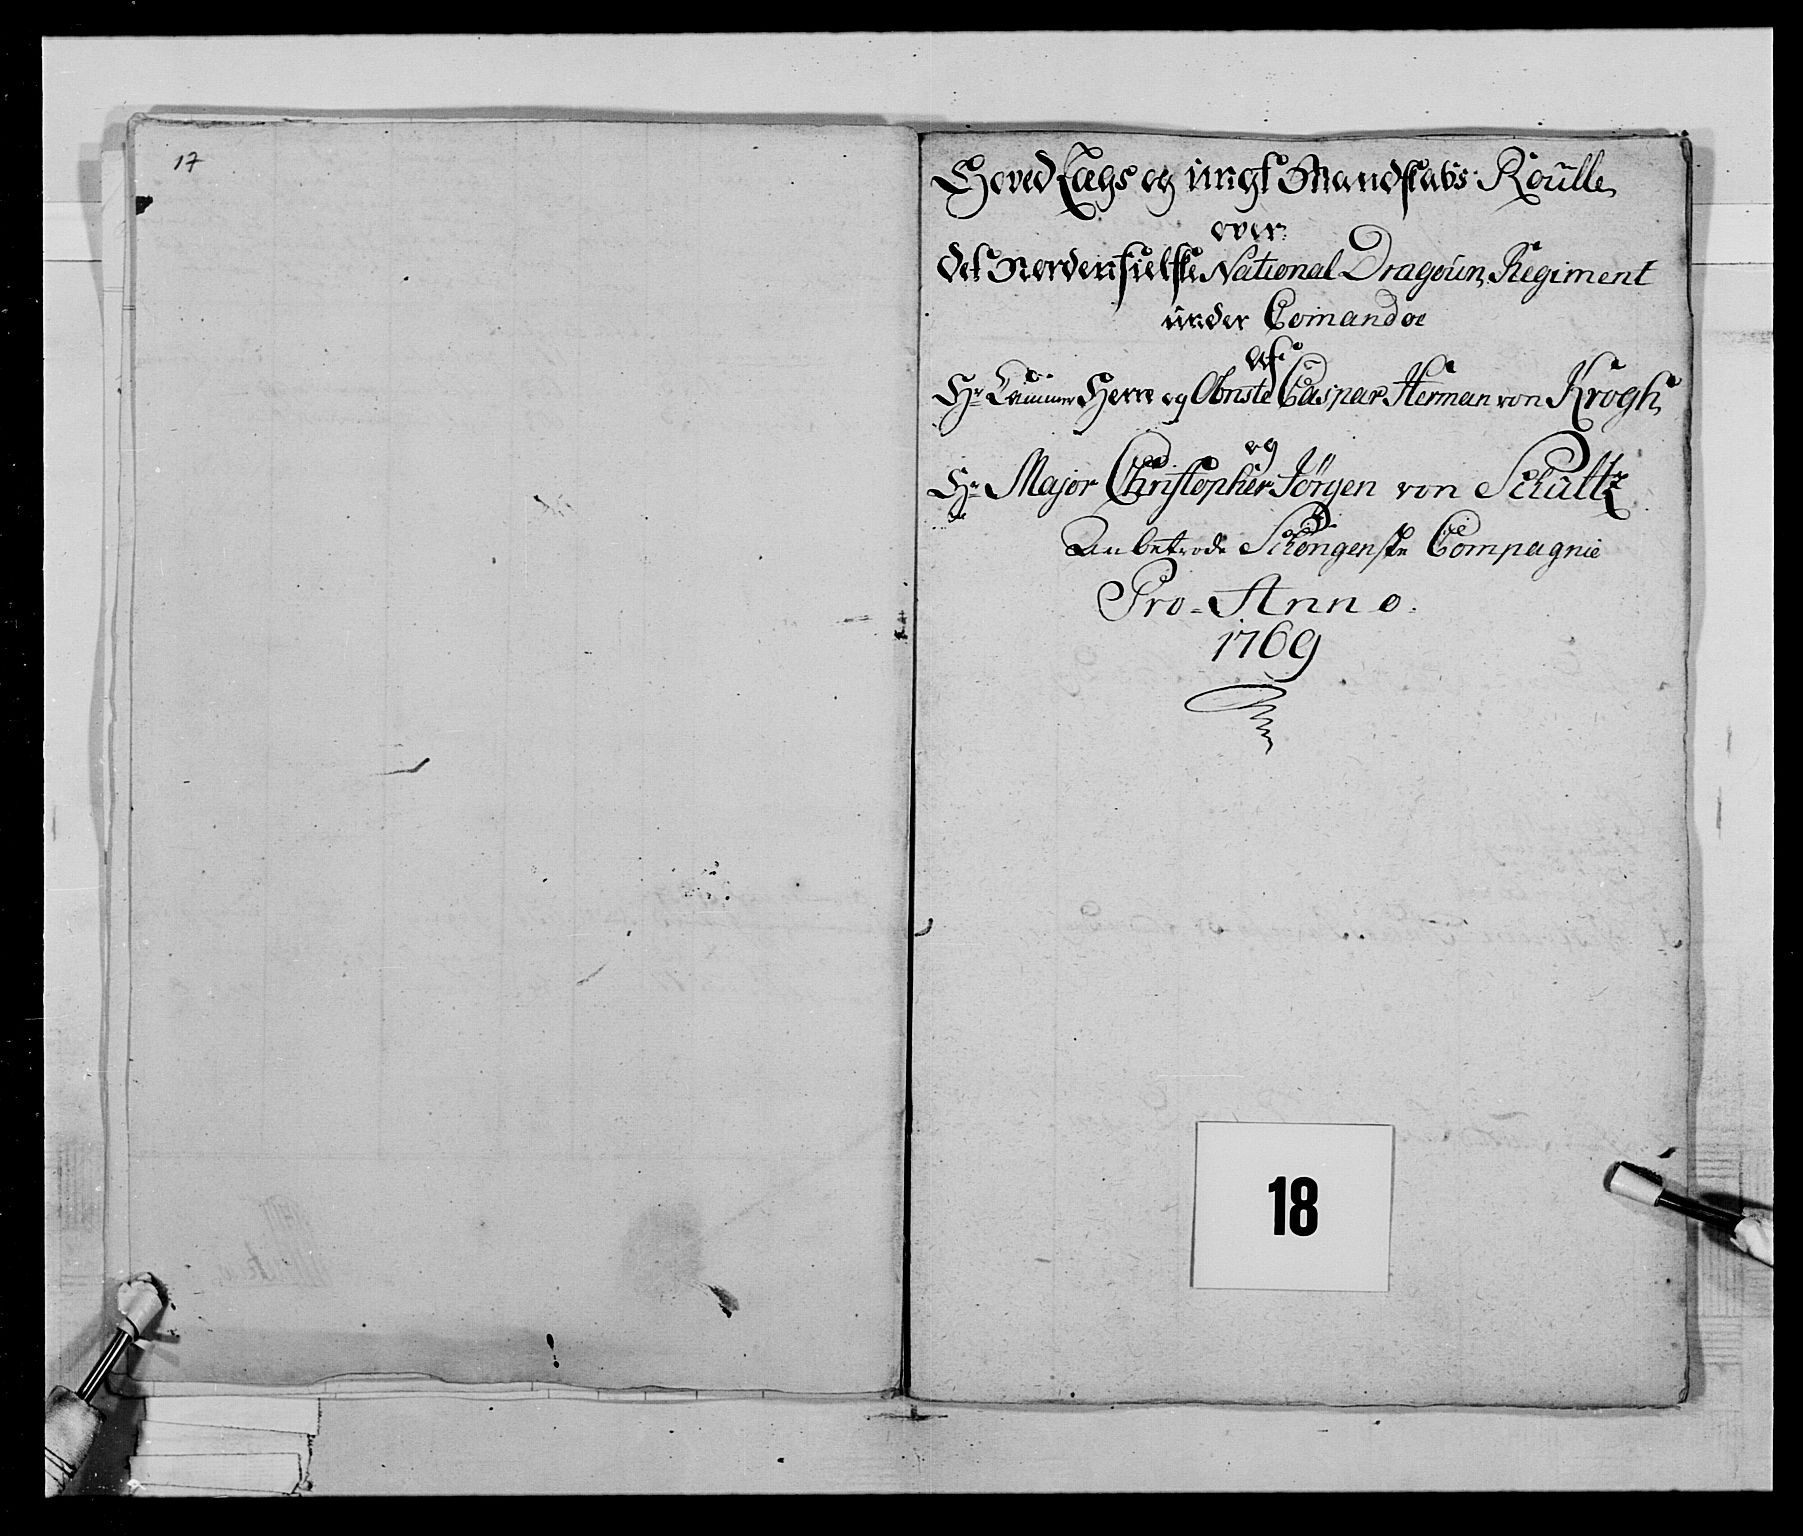 17
Hoved Lægs og ungt Mandskabs Roulle
over
det Nordenfielske National Dragoun Regiment
under Comando
af
Hr Cammer Herre og Obriste Caspar Herman von Krogh
og
Hr Major Christopher Jörgen von Schultz
Anbetrode Schöngenske Compagnie
Pro-Anno.
1769
18